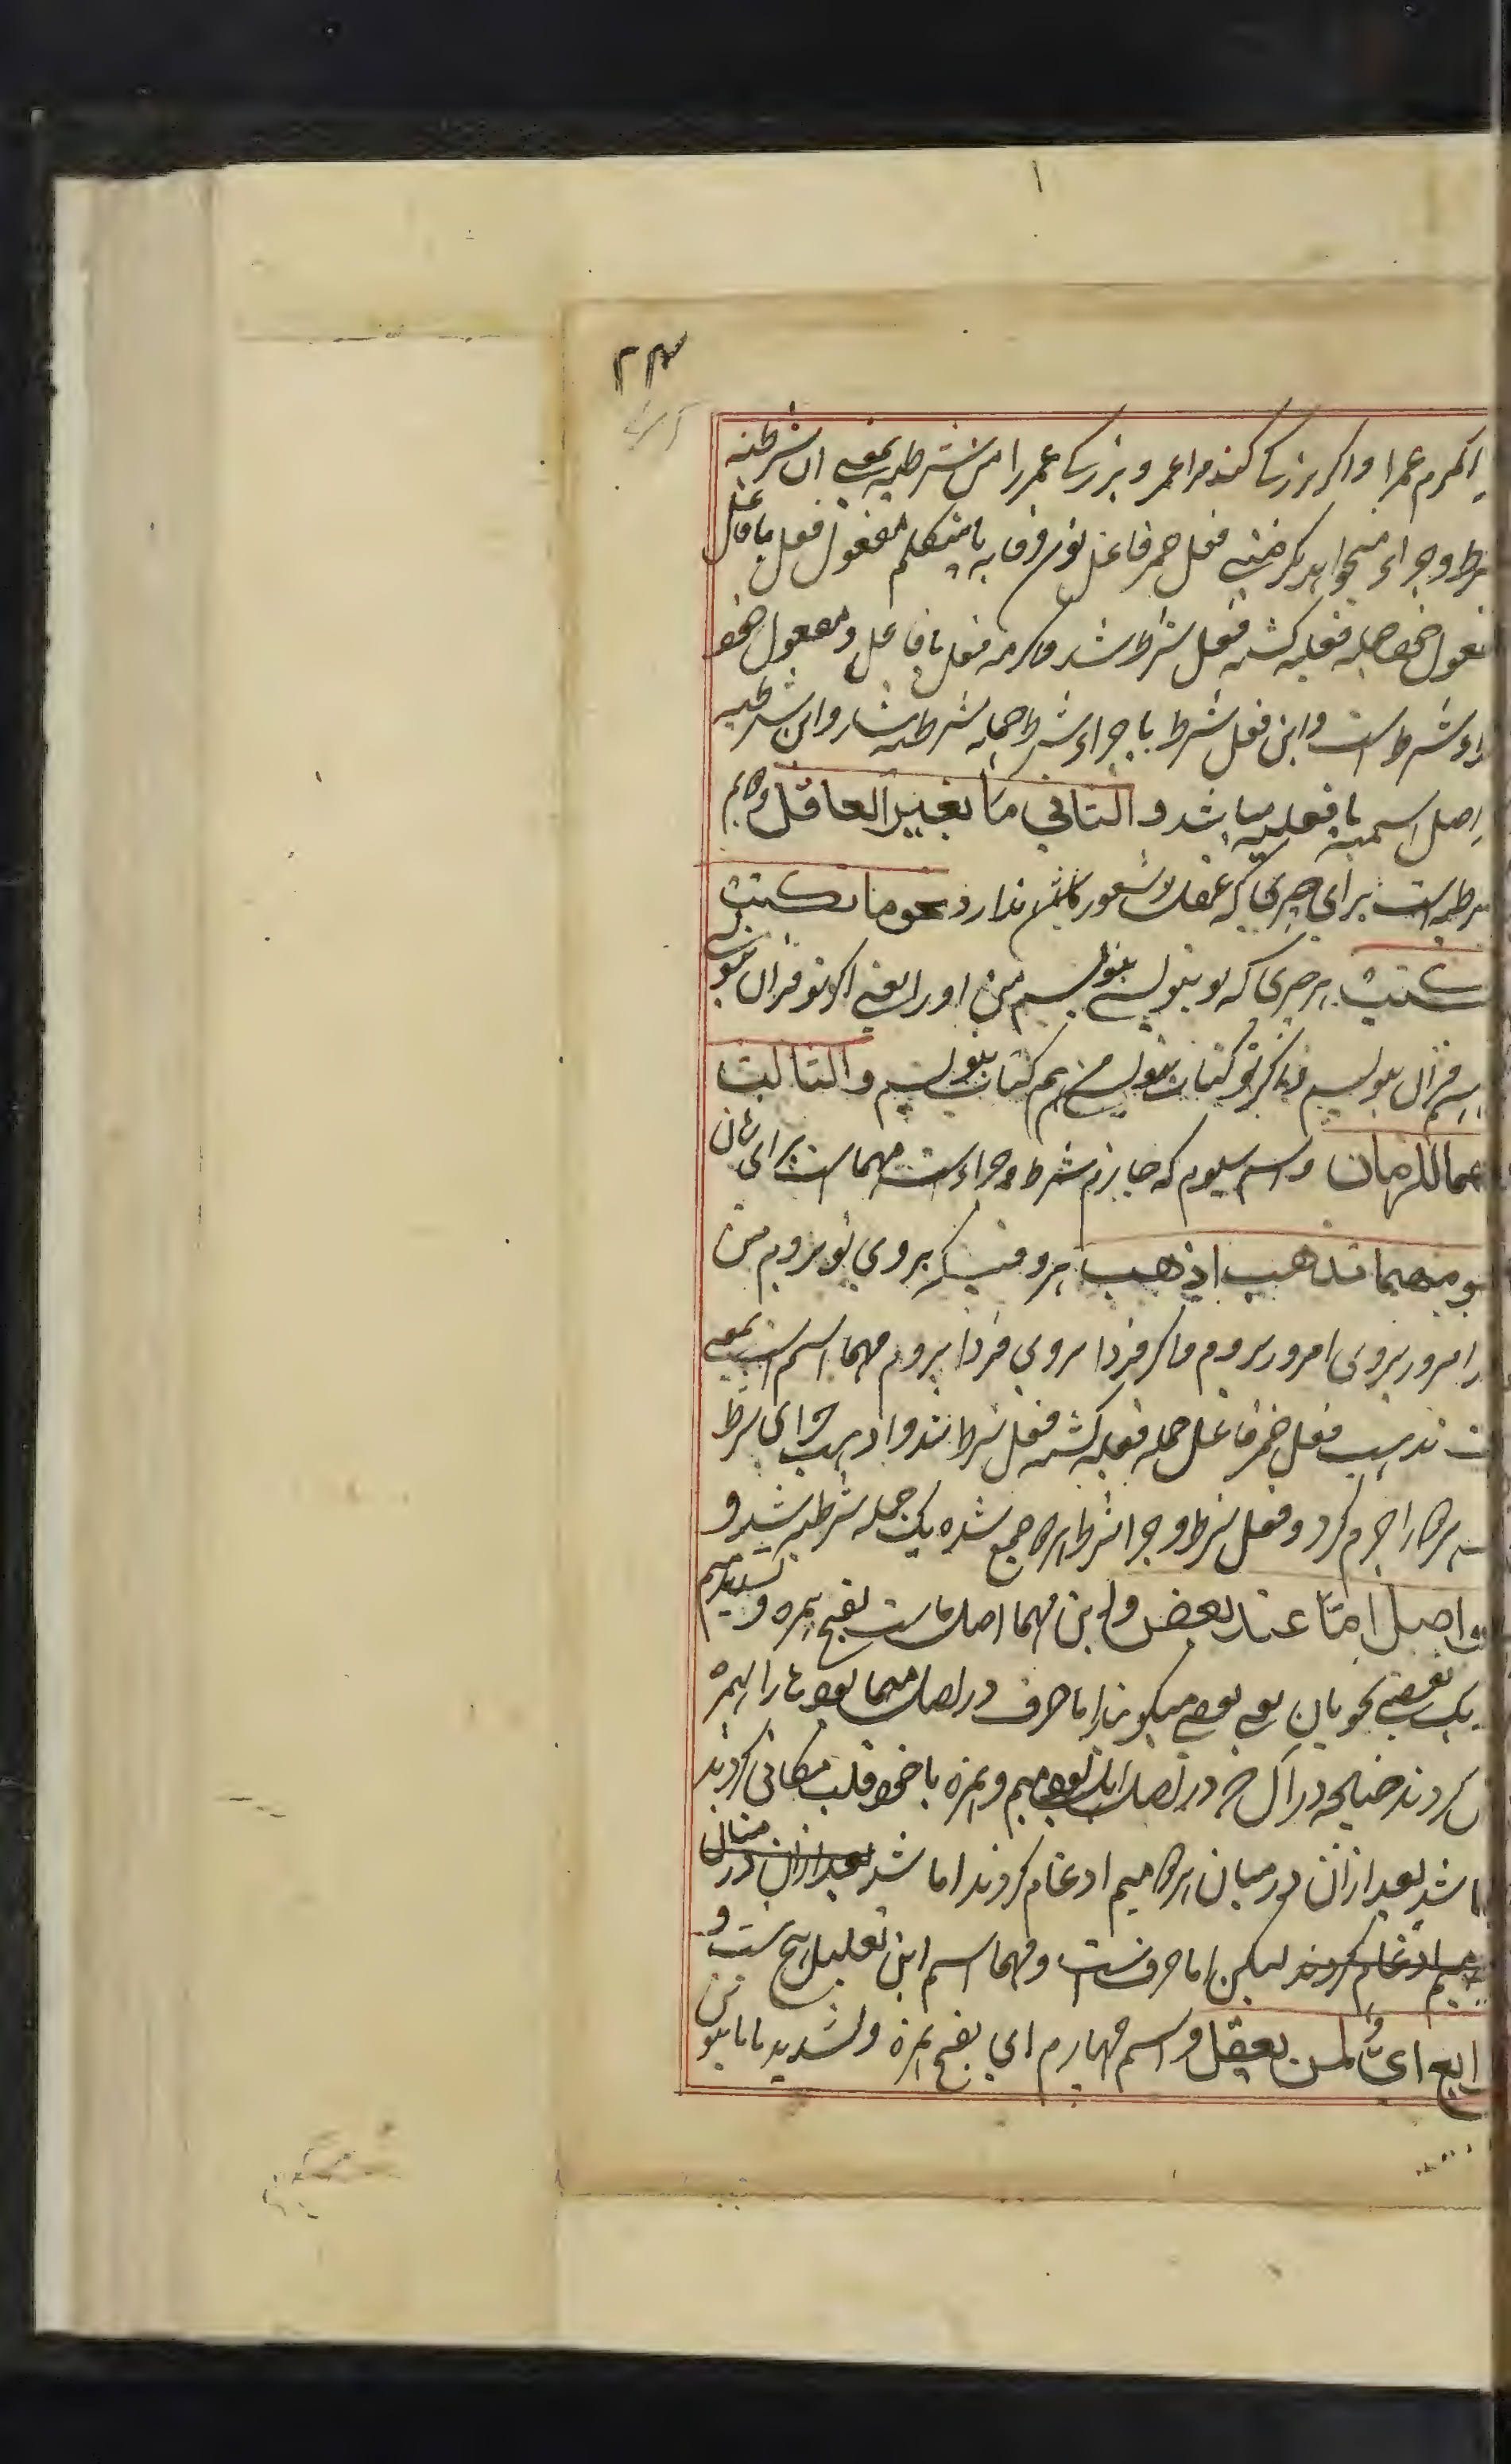 ۲۳
اکرم عمرا و اگر بزرگ کند مرا عمر و بزرگ عمر را من شرطیه بمعنی ان شرطیه
شرط و جزاء میخواهد یکرمنی فعل ضمیر فاعل نون وقایه یا متکلم مفعول فعل با فاعل
مفعول خود جمله فعلیه گشته فعل شرط شد و اکرمه فعل با فاعل و مفعول خود
شرط است و این فعل شرط با جزاء شرط جمله شرطیه شد و این شرطیه
اصل اسمیه یا فعلیه میباشد و الثانی ما لغیر العاقل و هم
شرطیه است برای چیزی که عقل و شعور ندارد نحو ما تکتب
اکتب هر چیزی که تو بنویسی بنویسم من او را یعنی اگر تو قرآن بنویسی
قرآن بنویسم و اگر تو کتاب بنویسی من هم کتاب بنویسم و الثالث
مهما للزمان و اسم سیوم که جازم شرط و جزاء است مهما است برای زمان
نحو مهما تذهب اذهب هر وقتیکه بروی تو بروم من
امروز بروی امروز بروم و اگر فردا بروی فردا بروم مهما اسم است بمعنی
تذهب فعل ضمیر فاعل جمله فعلیه گشته فعل شرط شد و اذهب جزای شرط
را جزم کرد و فعل شرط و جزا شرط هر دو جمع شده یک جمله شرطیه شد و
اصل امّا عند بعض و این مهما اصل اما است بفتح همزه و تشدید میم
نزدیک بعضی نحویان یعنی بعضی میگویند اما حرف در اصل مهما بود ها را همزه
کردند چنانچه در آل که در اصل اهل بود میم و همزه با خود قلب مکانی کردند
شد بعد ازان درمیان هر دو میم ادغام کردند اما شد بعد ازان درمیان
میم ادغام کردند لیکن اما حرفست و مهما اسم این تعلیل هیچ است و
الرابع ایّ لمن یعقل و اسم چهارم ای بفتح همزه و تشدید یا با تنوین